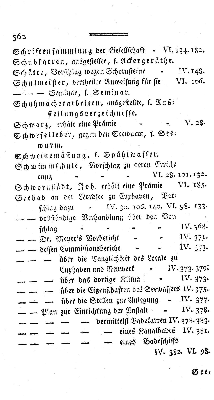 562
Schriftensammlung der Gesellschaft - VI. 134. 182.
Schubkarren, ausgesetzter, s. Ackergeräthe.
Schütze, Vorschlag wegen Schornsteine - IV. 149.
Schulmeister, vertheilte Anweisung für sie VI. 160.
— — Seminar, s. Seminar.
Schuhmacherarbeiten, ausgestellte, s. Aus-
stellungsverzeichnisse.
Schwarz, erhält eine Prämie - V. 28.
Schwefelleber, gegen den
wurm.
Schweinemästung, s. Spühlwasser.
Schwimmschule, Vorschlag zu deren Errich-
tung - VI. 28. 101. 132.
Joh. erhält eine Prämie VI. 185.
Seebad an der zu Cuxhaven, Vor-
schlag dazu - IV. 30. 106. VI. 98. 133.
— — vorläufige Verhandlung über den Vor-
schlag - IV. 368.
— — Dr. Vorbericht - IV. 371.
— — dessen Commissionsbericht - IV. 373.
— — — über die Tauglichkeit des Locale zu
Cuxhaven und Neuwerk IV. 373. 379.
— — — über das dortige Klima - IV. 373.
— — — über die Eigenschaften des Seewassers IV. 375.
— — — über die Stellen zur Anlegung - IV. 377.
— — Plan zur Einrichtung der Anstalt - IV. 378.
— — — — vermittelst Badekarren IV. 378. 383.
— — — — eines Kanalbades IV. 381.
— — — — eines Badeschiffs
IV. 382. VI. 98.
See-